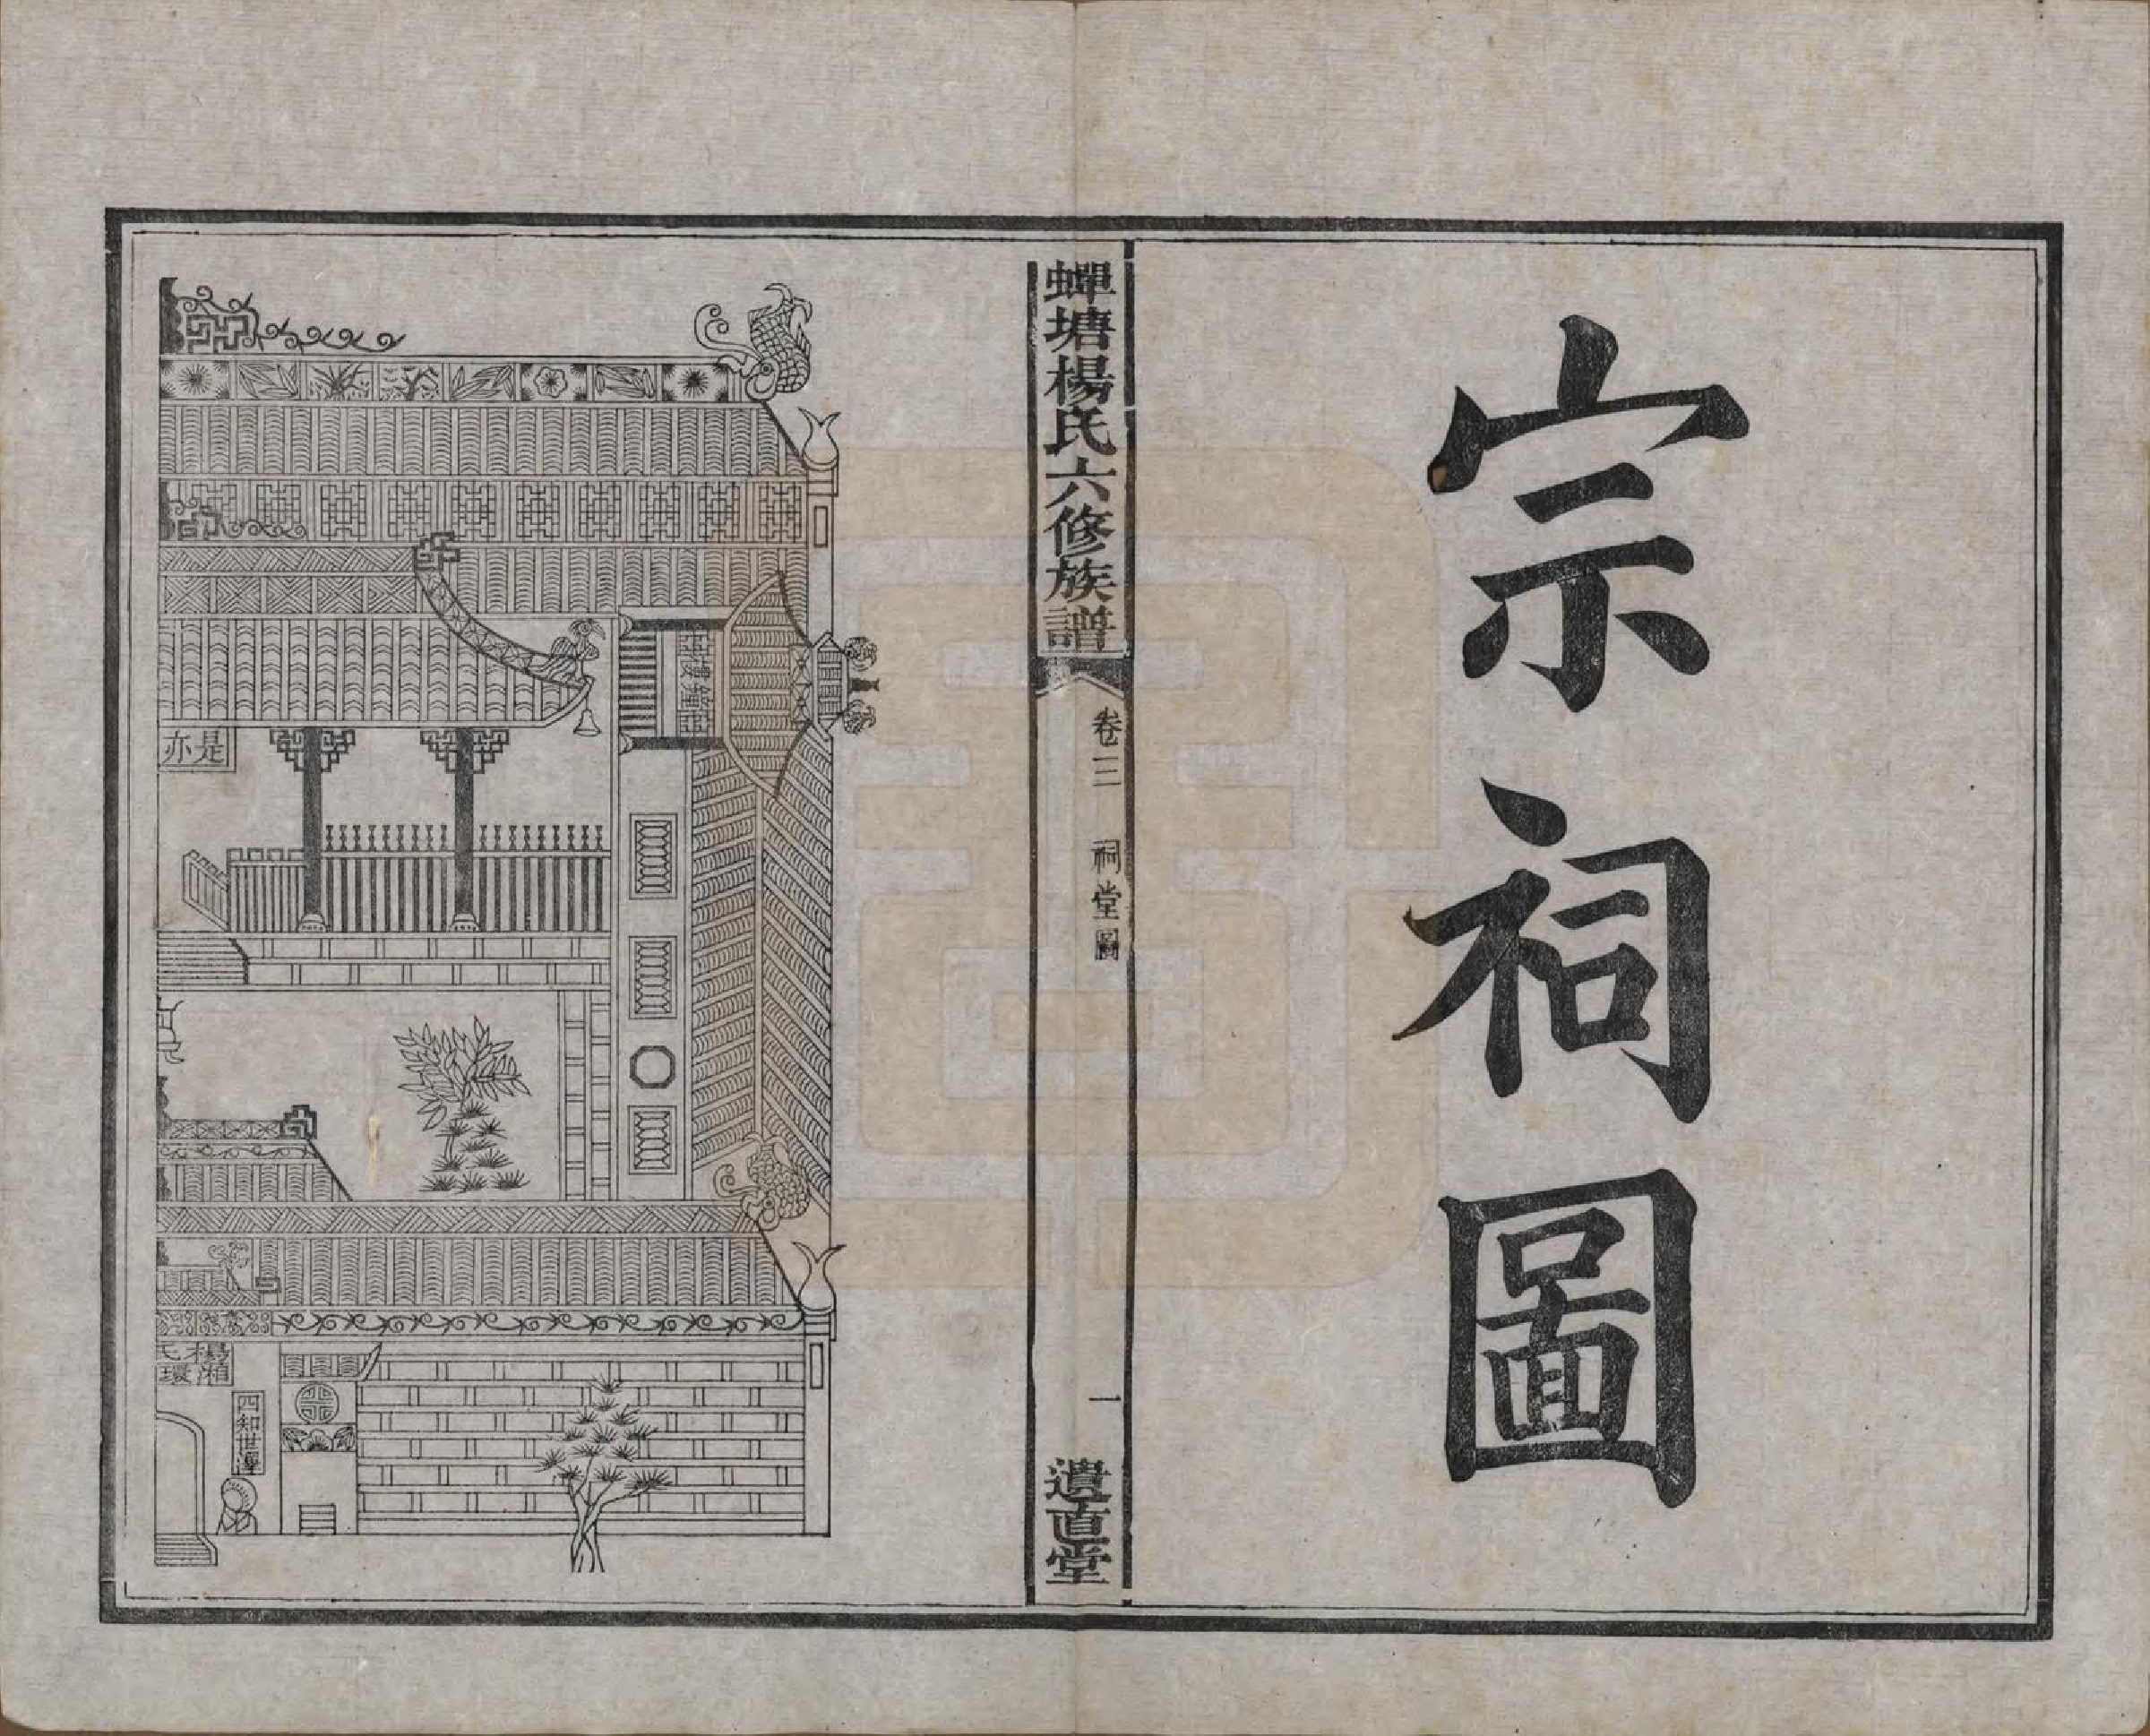 宗祠圖
蟬塘楊氏六修族譜
卷三
祠堂圖
一
遺直堂
是亦
楊氏
湘環
四知世澤